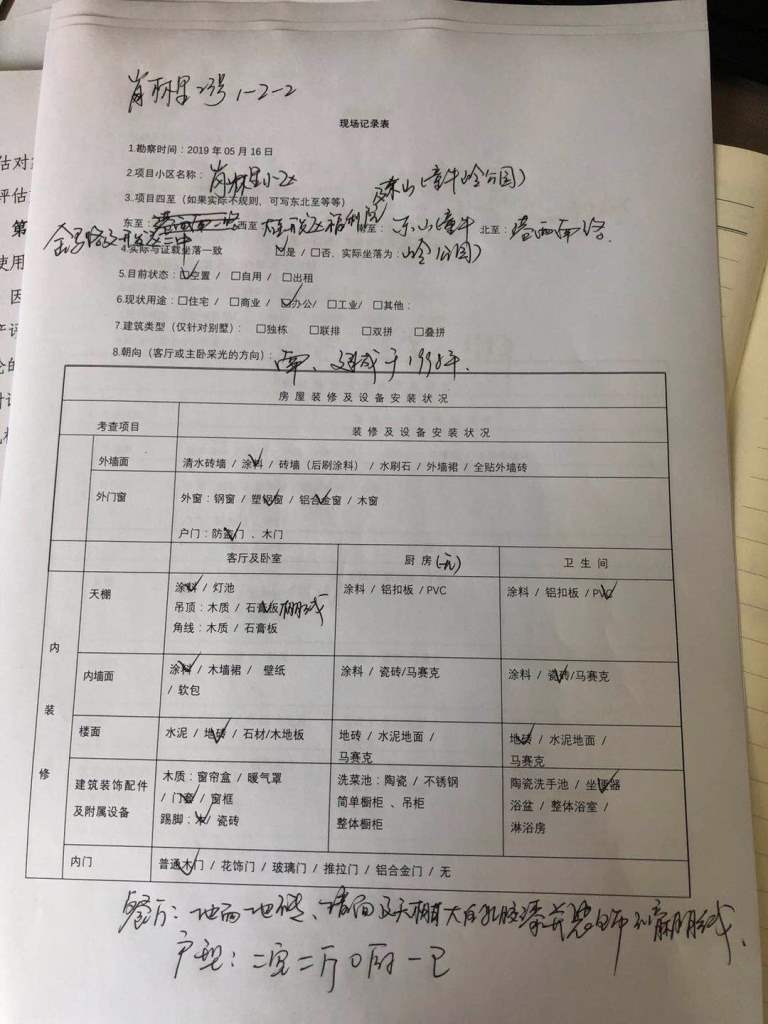 肖林里 23号 1-2-2
现场记录表
1.勘察时间：2019 年 05 月 16 日
2.项目小区名称： 肖林里小区
及东山(童牛岭公园)
3.项目四至（如果实际不规则，可写东北至等等）
东至： 金马路及开发区三中 西至 大连开发区福利院 至： 东山(童牛岭公园) 北至：
4.实际与证载坐落一致 ☑是 / □否，实际坐落为：
5.目前状态：☑空置 / □自用 / □出租
6.现状用途：□住宅 / □商业 / ☑办公/ □工业/ □其他：
7.建筑类型（仅针对别墅）： □独栋 □联排 □双拼 □叠拼
8.朝向（客厅或主卧采光的方向）： 南、建成于1998年.
房屋装修及设备安装状况
考查项目 装修及设备安装状况
外墙面 清水砖墙 / 涂料 / 砖墙（后刷涂料） / 水刷石 / 外墙裙 / 全贴外墙砖
外门窗 外窗：钢窗 / 塑钢窗 / 铝合金窗 / 木窗
户门：防盗门 、木门
内装修
客厅及卧室 厨房(无) 卫生间
天棚 涂料 / 灯池 涂料 / 铝扣板 / PVC 涂料 / 铝扣板 / PVC
吊顶：木质 / 石膏板
角线：木质 / 石膏板
内墙面 涂料 / 木墙裙 / 壁纸 涂料 / 瓷砖/马赛克 涂料 / 瓷砖/马赛克
/ 软包
楼面 水泥 / 地砖 / 石材/木地板 地砖 / 水泥地面 / 地砖 / 水泥地面 /
马赛克 马赛克
建筑装饰配件 木质：窗帘盒 / 暖气罩 洗菜池：陶瓷 / 不锈钢 陶瓷洗手池 / 坐便器
及附属设备 / 门套 / 窗框 简单橱柜 、吊柜 浴盆 / 整体浴室 /
踢脚：木/ 瓷砖 整体橱柜 淋浴房
内门 普通木门 / 花饰门 / 玻璃门 / 推拉门 / 铝合金门 / 无
餐厅：地面地砖、墙面及天棚大白乳胶漆
户型：二室二厅0厨一卫
估对
评估
第
使用
因